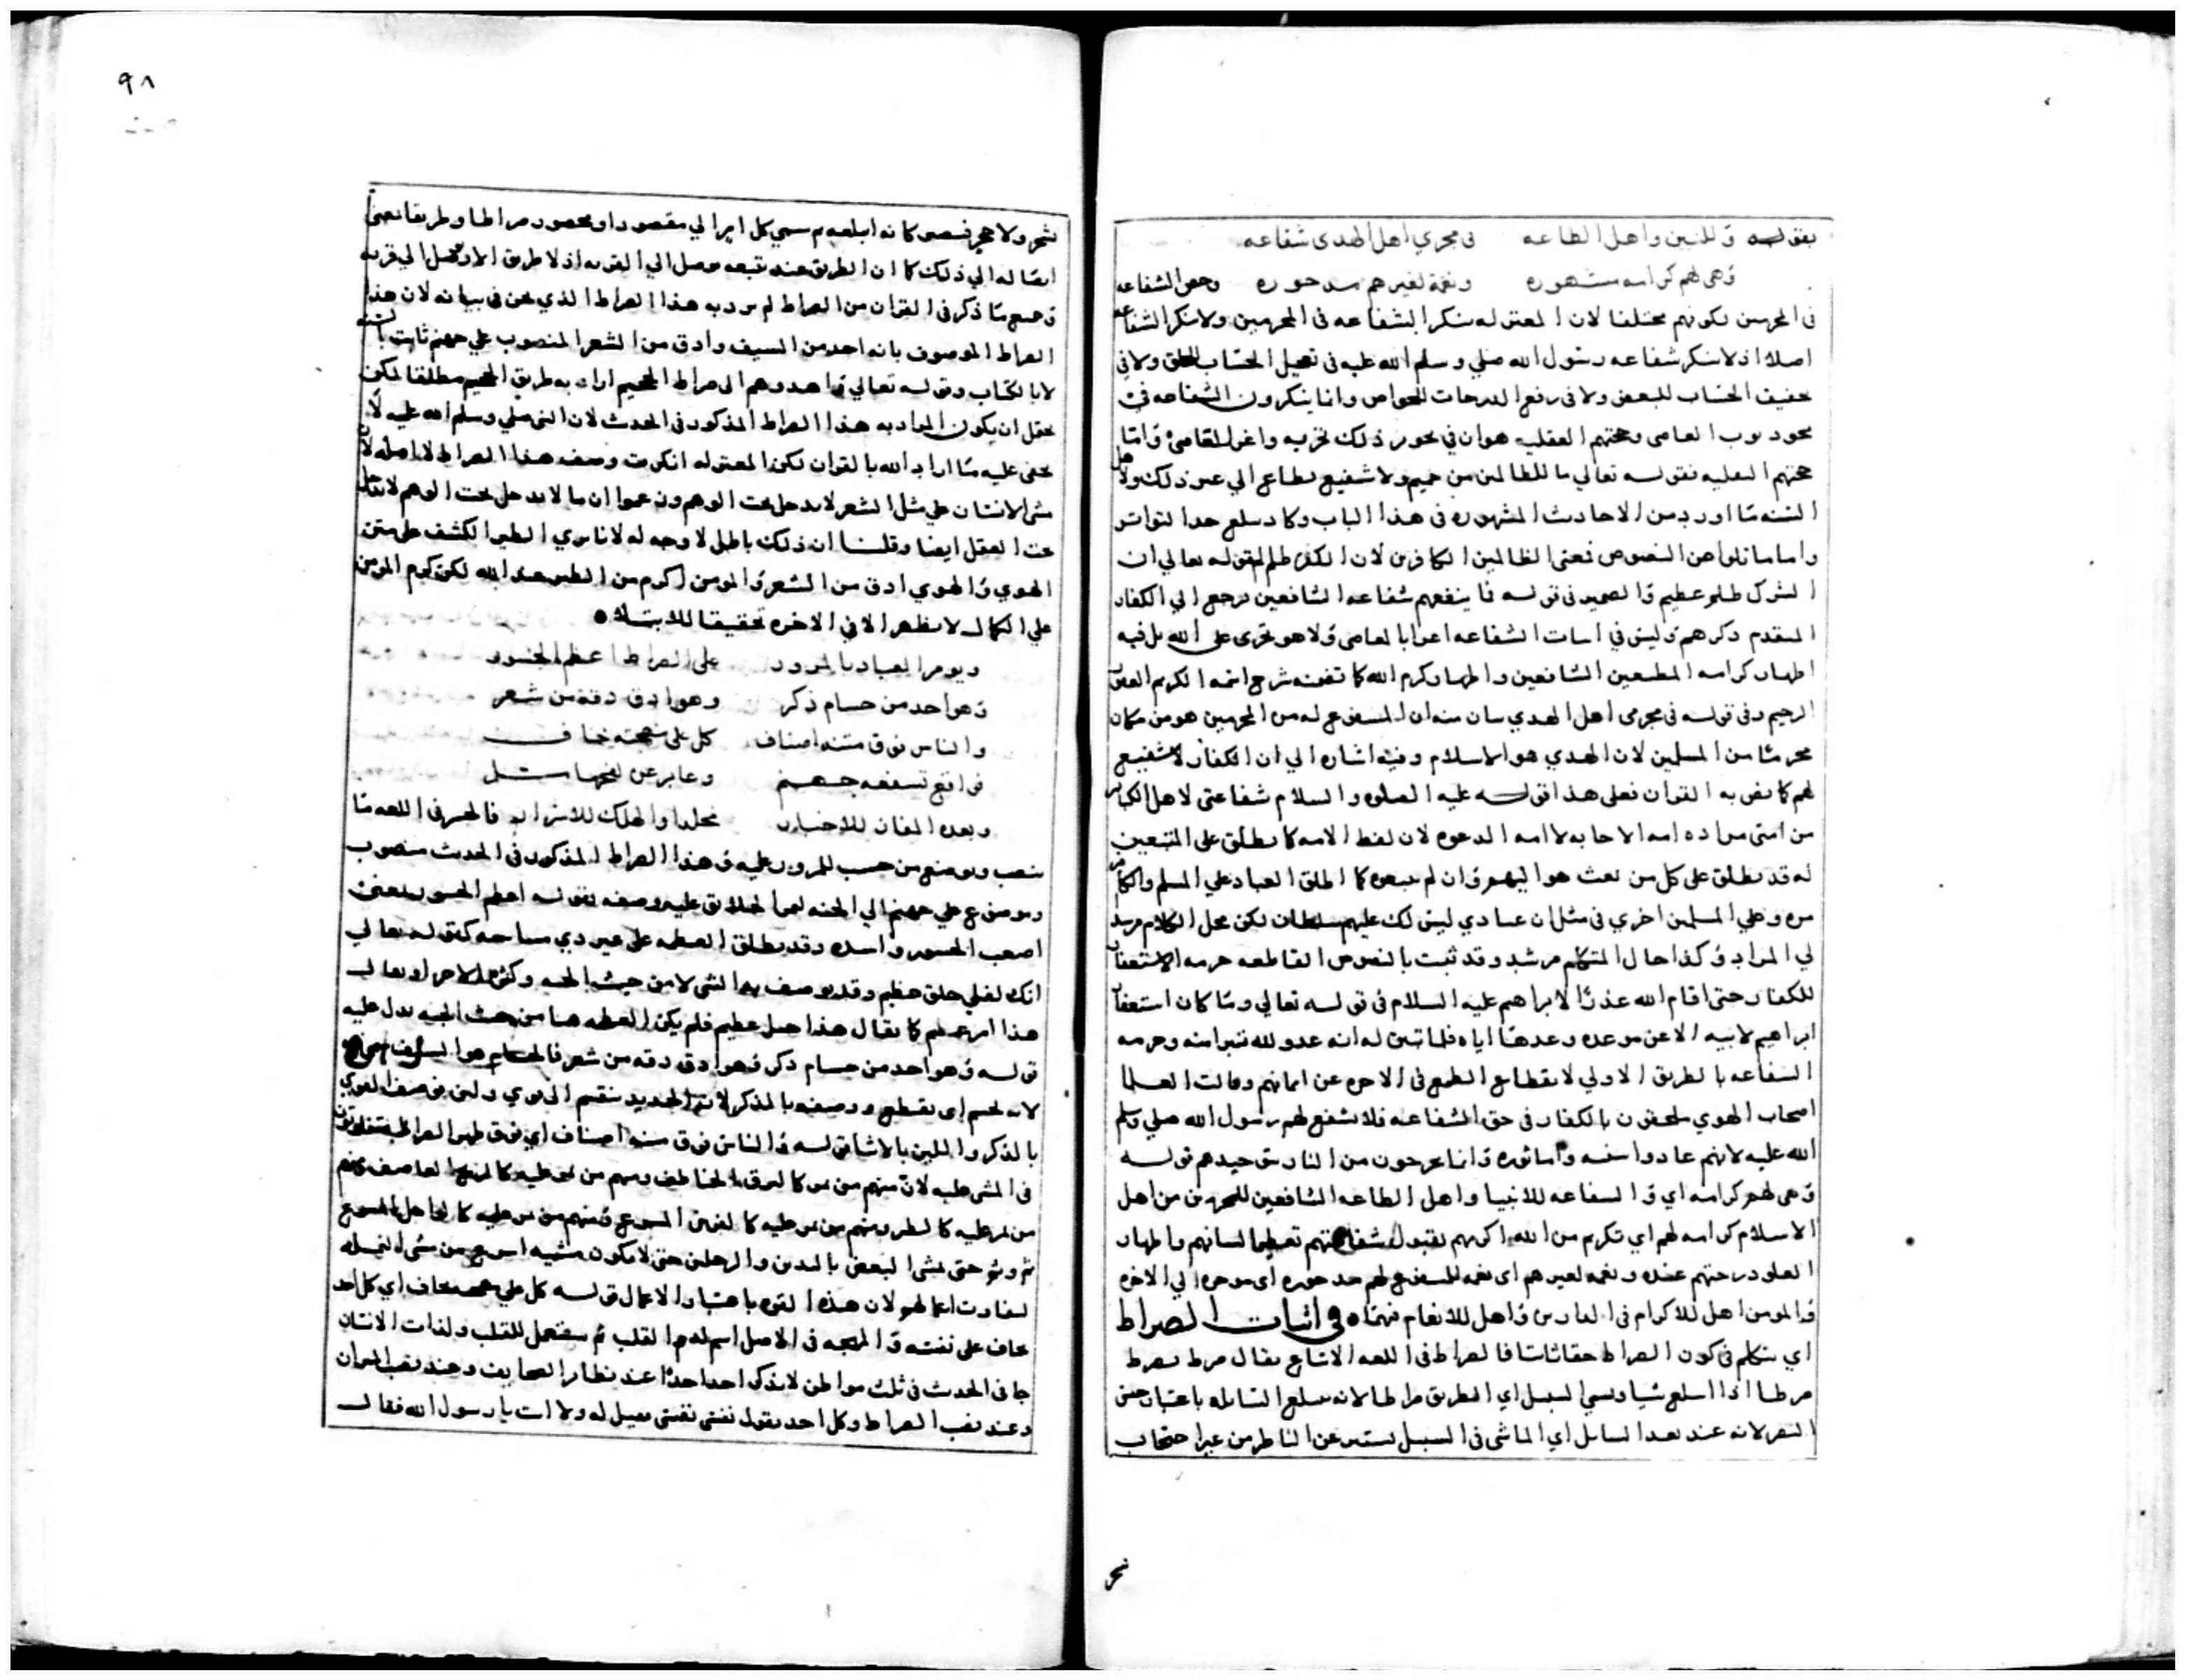 بقوله وللنبيين واهل الطاعه في مجرمي اهل الهدى شفاعه
وهي لهم كرامه مشهوره ونعمة لغيرهم مدحوره وخص الشفاعه
في المجرمين لكونهم مختلفا لان المعتزله تنكر الشفاعه في المجرمين ولا تنكر الشفاعه
اصلا اذ لا تنكر شفاعه رسول الله صلي وسلم الله عليه في تعجيل الحساب للخلق ولا في
تخفيف الحساب للبعض ولا في رفع الدرجات للخواص وانما ينكرون الشفاعه في
العاصي وحجتهم العقليه هو ان في ذلك للعاصي واما
حجتهم النقليه فقوله تعالي ما للظالمين من حميم ولا شفيع يطاع الي غير ذلك ولنا
السنه ما اورد من الاحاديث المشهوره في هذا الباب وكاد يبلغ حد التواتر
واما ما تلوا من النصوص فمعني الظالمين الكافرين لان الكفر ظلم لقوله تعالي ان
الشرك لظلم عظيم والضمير في قوله فما ينفعهم شفاعه الشافعين يرجع الي الكفار
المتقدم ذكرهم وليس في اثبات الشفاعه اغرا بالمعاصي ولا هو تجري على الله بل فيه
اظهار كرامه المطيعين الشافعين واظهار كرم الله كما تضمنه شرح اسمه الكريم
الرحيم وفي قوله في مجرمي اهل الهدي بيان منه ان المشفوع له من المجرمين هو من كان
مجرما من المسلمين لان الهدي هو الاسلام وفيه اشاره الي ان الكفار لا شفيع
لهم كما نص به القران فعلى هذا قوله عليه الصلوه والسلام شفاعتي لاهل الكبائر
من امتي مراده امه الاجابه لا امه الدعوه لان لفظ الامه كما يطلق على المتبعين
له قد يطلق على كل من بعث هو اليهم وان لم يتبعوه كما اطلق العباد علي المسلم والكافر
مره وعلي المسلمين اخري في مثل ان عبادي ليس لك عليهم سلطان لكن محل الكلام مرشد
لي المراد وكذا حال المتكلم مرشد وقد ثبت بالنصوص القاطعه حرمه الاستغفار
للكفار حتى اقام الله عذرا لابراهيم عليه السلام في قوله تعالي وما كان استغفار
ابراهيم لابيه الا عن موعده وعدها اياه فلما تبين له انه عدو لله تبرا منه وحرمه
الشفاعه بالطريق الاولي لانقطاع الطمع في الاخره عن ايمانهم وقالت العلما
اصحاب الهوي ملحقون بالكفار في حق الشفاعه فلا تشفع لهم رسول الله صلي وسلم
الله عليه لانهم عادوا سنه وانما يخرجون من النار بتوحيدهم قوله
وهي لهم كرامه اي والشفاعه للانبيا واهل الطاعه الشافعين للمجرمين من اهل
الاسلام كرامه لهم اي تكريم من الله اكرمهم بقبول شفاعتهم تعظيما لشانهم واظهار
العلو درجتهم عنده ونعمه لغيرهم اي نعمه للمشفوع لهم اي موخره الي الاخره
والمومن اهل للاكرام في الدارين واهل للانعام فيهما في اثبات الصراط
اي نتكلم في كون الصراط حقا ثابتا فالصراط في اللغه يقال صرط يصرط
صرطا اذا ابتلع شيا وسمي السبيل اي الطريق صراطا لانه يبتلع السابله باعتبار حس
البصر لانه عند بعد السابل اي الماشي في السبيل يستتر عن الناظر من غير احتجاب
شجر
٩٨
شجر ولا حجر فيصير كانه ابتلعه ثم سمي كل امر الي مقصود او محصور صراطا وطريقا
ايصاله الي ذلك كما ان الطريق عند تتبعه يوصل الي القريه اذ لا طريق الا ويصل الي قريه
وجميع ما ذكر في القران من الصراط لم يرد به هذا الصراط الذي نحن في بيانه لان هذا
الصراط الموصوف بانه احد من السيف وادق من الشعر المنصوب علي جهنم ثابت بالسنه
لا بالكتاب وقوله تعالي واهدوهم الى صراط الجحيم اراد به طريق الجحيم مطلقا لكن
يحتمل ان يكون المراد به هذا الصراط المذكور في الحديث لان النبي صلي وسلم الله عليه لا
يخفى عليه ما اراد الله بالقران لكن المعتزله انكرت وصف هذا الصراط لا اصله لان
مشي الانسان علي مثل الشعر لا يدخل تحت الوهم وزعموا ان ما لا يدخل تحت الوهم لا يدخل
تحت العقل ايضا وقلنا ان ذلك باطل لا وجه له لانا نري الطير على متن
الهوي والهوي ادق من الشعر والمومن اكرم من الطير عند الله لكن كرم المومن
علي الكمال لا يظهر الا في الاخره تحقيقا للابتلا
ويومر العباد بالمرور على الصراط اعظم الجسور
وهو احد من حسام ذكر وهو ادق دقة من شعر
والناس فوق متنه اصناف كل على مهجته خاف
فواقع تسفعه جهنم وعابر عن
وبعده المفاز للاخيار مخلدا والهلك للاشرار فالجسر في اللغه ما
ينصب ويوضع من خشب للمرور عليه وهذا الصراط المذكور في الحديث منصوب
وموضوع علي جهنم الي الجنه لمرور الخلايق عليه وصفه بقوله اعظم الجسور بمعني
اصعب الجسور واشده وقد يطلق العظيم على غير ذي مساحه كقوله تعالي
انك لعلي خلق عظيم وقد يوصف به الشي لا من حيث الجثه
هذا امر عظيم كما يقال هذا جبل عظيم فلم يكن العظمه هنا من حيث الجثه يدل عليه
قوله وهو احد من حسام ذكر وهو ادق دقه من شعر فالحسام هو السيف
لانه يحسم اي يقطع ووصفه بالمذكر لان الحديد ينقسم الى قوي ولين فوصف القوي
بالذكر واللين بالانثا قوله والناس فوق متنه اصناف اي فوق ظهر الصراط
في المشي عليه لان منهم من يمر كالبرق الخاطف ومنهم من يمر عليه كالريح العاصف ومنهم
من يمر عليه كالطير ومنهم من يمر عليه كالفرس المسرع ومنهم من يمر عليه كالراجل المسرع
ثم وثم حتى يمشي البعض باليدين والرجلين حتى لا يكون مشيه اسرع من مشي النمله
لتفاوت اعمالهم لان هذه القوه باعتبار الاعمال قوله كل علي مهجته خاف اي كل احد
خاف على نفسه والمهجه في الاصل اسم لدم القلب ثم يستعمل للقلب ولذات الانسان
جا في الحديث في ثلث مواطن لا يذكر احد احدا عند تطاير الصحايف وعند نصب الميزان
وعند نصب الصراط وكل احد يقول نفسي نفسي فقيل له ولا انت يا رسول الله فقال